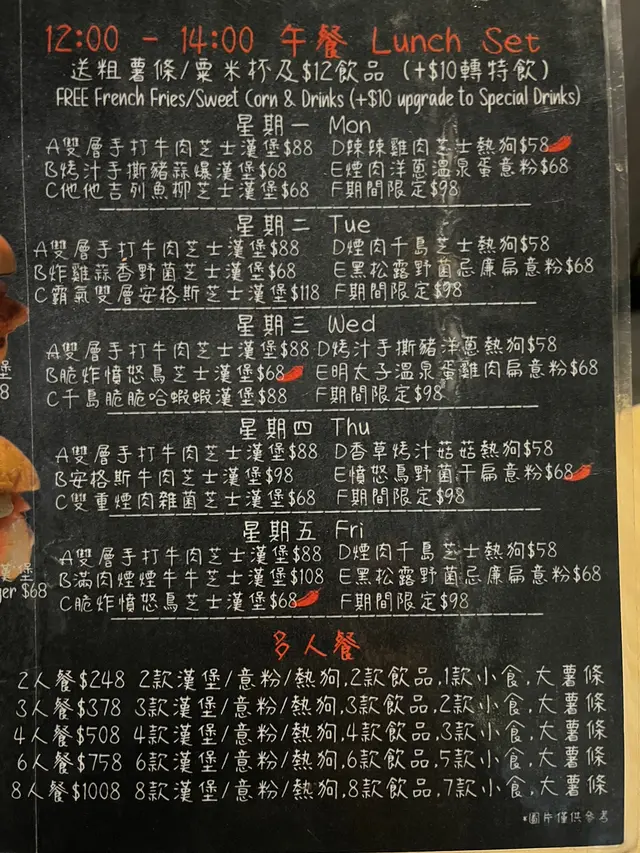 12:00 - 14:00 午餐 Lunch Set
送粗薯條/粟米杯及$12飲品 (+$10轉特飲)
FREE French Fries/Sweet Corn & Drinks (+$10 upgrade to Special Drinks)
星期一 Mon
A雙層手打牛肉芝士漢堡$88 D辣辣雞肉芝士熱狗$58
B烤汁手撕豬蒜爆漢堡$68 E煙肉洋蔥溫泉蛋意粉$68
C他他吉列魚柳芝士漢堡$68 F期間限定$98
星期二 Tue
A雙層手打牛肉芝士漢堡$88 D煙肉千島芝士熱狗$58
B炸雞蒜香野菌芝士漢堡$68 E黑松露野菌忌廉扁意粉$68
C霸氣雙層安格斯芝士漢堡$118 F期間限定$98
星期三 Wed
A雙層手打牛肉芝士漢堡$88 D烤汁手撕豬洋蔥熱狗$58
B脆炸憤怒鳥芝士漢堡$68 E明太子溫泉蛋雞肉扁意粉$68
C千島脆脆哈蝦蝦漢堡$88 F期間限定$98
星期四 Thu
A雙層手打牛肉芝士漢堡$88 D香草烤汁菇菇熱狗$58
B安格斯牛肉芝士漢堡$98 E憤怒鳥野菌干扁意粉$68
C雙重煙肉雜菌芝士漢堡$68 F期間限定$98
星期五 Fri
A雙層手打牛肉芝士漢堡$88 D煙肉千島芝士熱狗$58
B滿肉煙煙牛牛芝士漢堡$108 E黑松露野菌忌廉扁意粉$68
C脆炸憤怒鳥芝士漢堡$68 F期間限定$98
多人餐
2人餐$248 2款漢堡/意粉/熱狗,2款飲品,1款小食,大薯條
3人餐$378 3款漢堡/意粉/熱狗,3款飲品,2款小食,大薯條
4人餐$508 4款漢堡/意粉/熱狗,4款飲品,3款小食,大薯條
6人餐$758 6款漢堡/意粉/熱狗,6款飲品,5款小食,大薯條
8人餐$1008 8款漢堡/意粉/熱狗,8款飲品,7款小食,大薯條
*圖片僅供參考